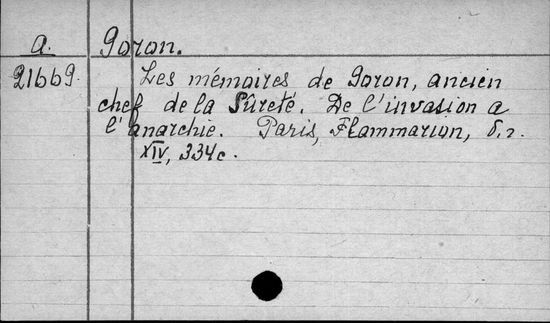 a. Goron.
21669. Les mémoires de Goron, ancien
chef de la Sûreté. De l'invasion a
l'anarchie. Paris, Flammarion, б.г.
XIV, 334 c.